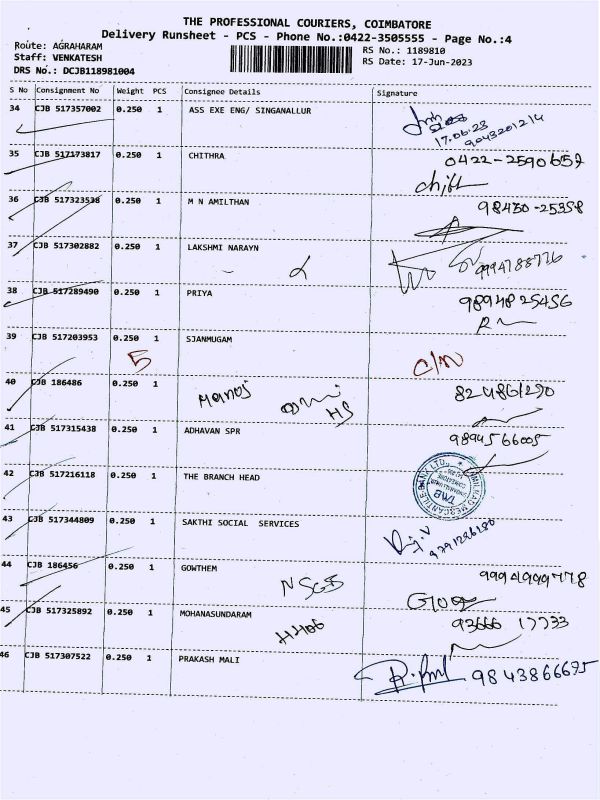 THE PROFESSIONAL COURIERS, COIMBATORE
Delivery Runsheet - PCS - Phone No.:0422-3505555 - Page No.:4
Route: AGRAHARAM
RS No.: 1189810
Staff: VENKATESH
RS Date: 17-Jun-2023
DRS No.: DCJB118981004
S No Consignment No Weight PCS Consignee Details Signature
34 CJB 517357002 0.250 1 ASS EXE ENG/ SINGANALLUR
17.06.23
9043201214
35 CJB 517173817 0.250 1 CHITHRA 0422-2590657
36 CJB 517323538 0.250 1 M N AMILTHAN 98430-25358
37 CJB 517302882 0.250 1 LAKSHMI NARAYN 9994788776
38 CJB 517289490 0.250 1 PRIYA 9894825456
39 CJB 517203953 0.250 1 SJANMUGAM
5 C/N
40 CJB 186486 0.250 1 Manoj HS 824861290
41 CJB 517315438 0.250 1 ADHAVAN SPR 9894566005
42 CJB 517216118 0.250 1 THE BRANCH HEAD
43 CJB 517344809 0.250 1 SAKTHI SOCIAL SERVICES
44 CJB 186456 0.250 1 GOWTHEM 9994999778
45 CJB 517325892 0.250 1 MOHANASUNDARAM 93666 17733
46 CJB 517307522 0.250 1 PRAKASH MALI 9843866675